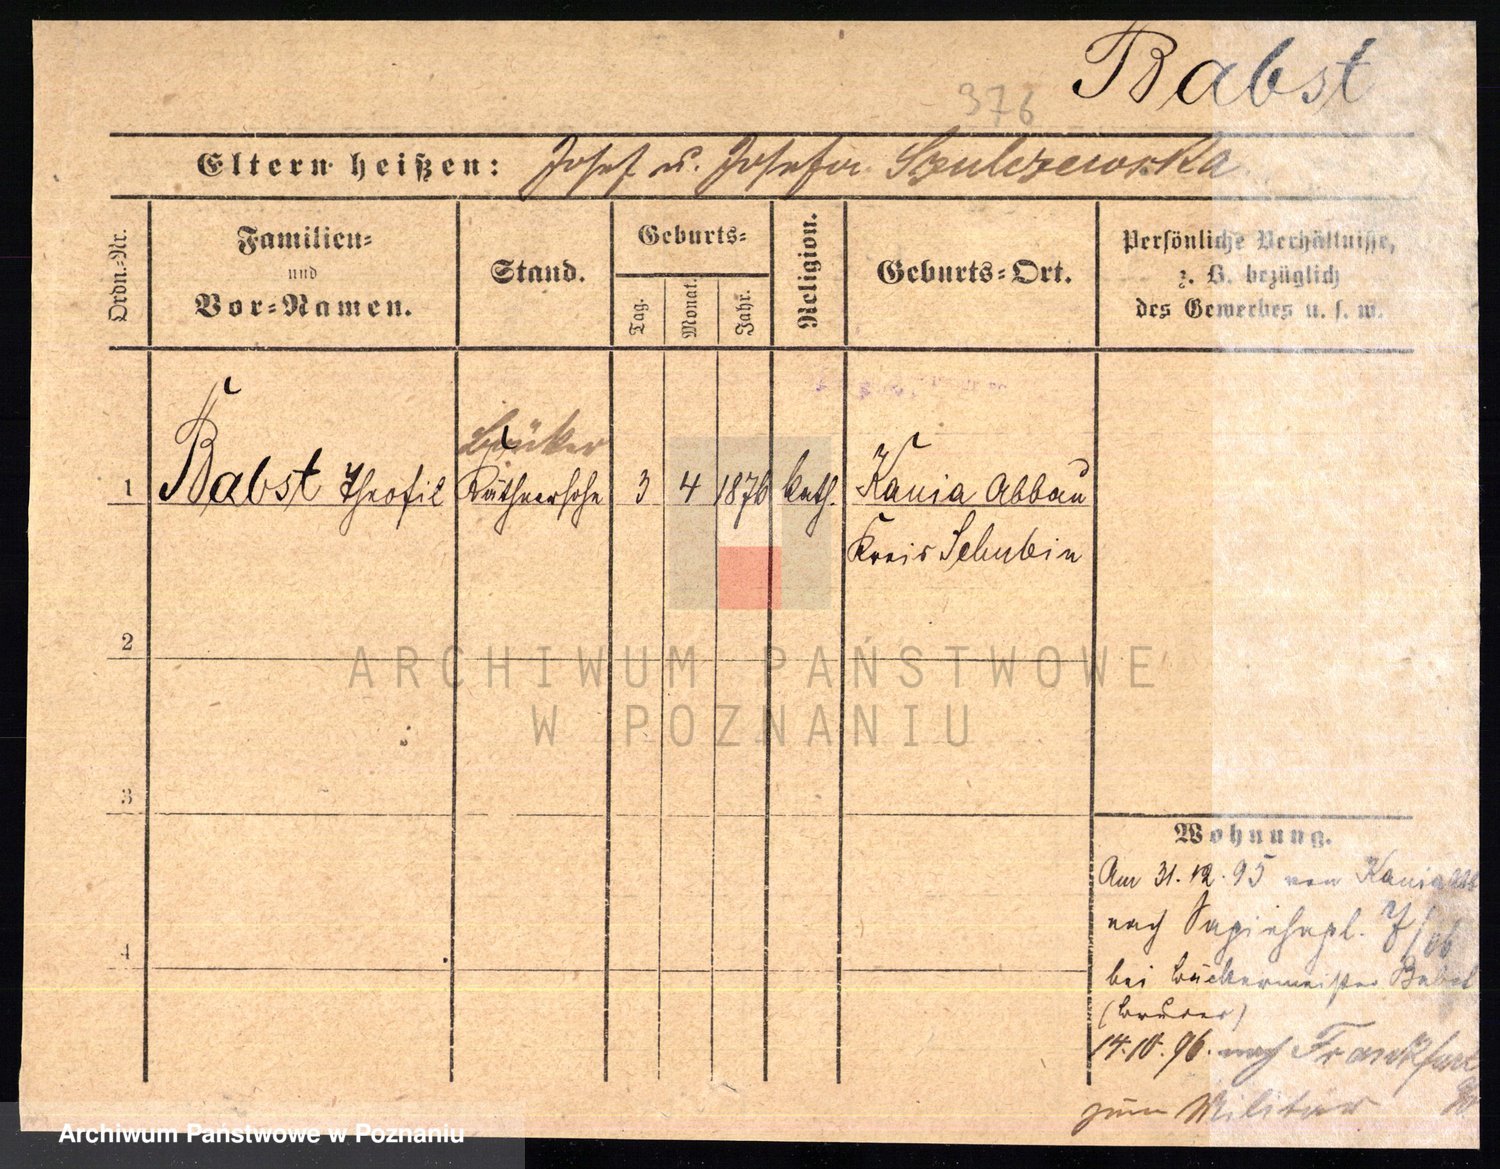 Babst
376
Eltern heißen: Josef u. Josefa Szulczewska
Ordn.-Nr.
Familien-
und
Vor-Namen.
Stand.
Geburts-
Tag.
Monat.
Jahr.
Religion.
Geburts-Ort.
Persönliche Verhältnisse,
z. B. bezüglich
des Gewerbes u. s. w.
Bäcker
1 Babst Theofil Käthnersohn 3 4 1876 kath. Kania Abbau
Kreis Schubin
2
ARCHIWUM PAŃSTWOWE
W POZNANIU
3
Wohnung.
Am 31.12.95 von Kania
nach Sapiehapl. 7/
4
bei Bäckermeister Babst
(Bruder)
14.10.96. nach Frankfurt
zum Militär
Archiwum Państwowe w Poznaniu